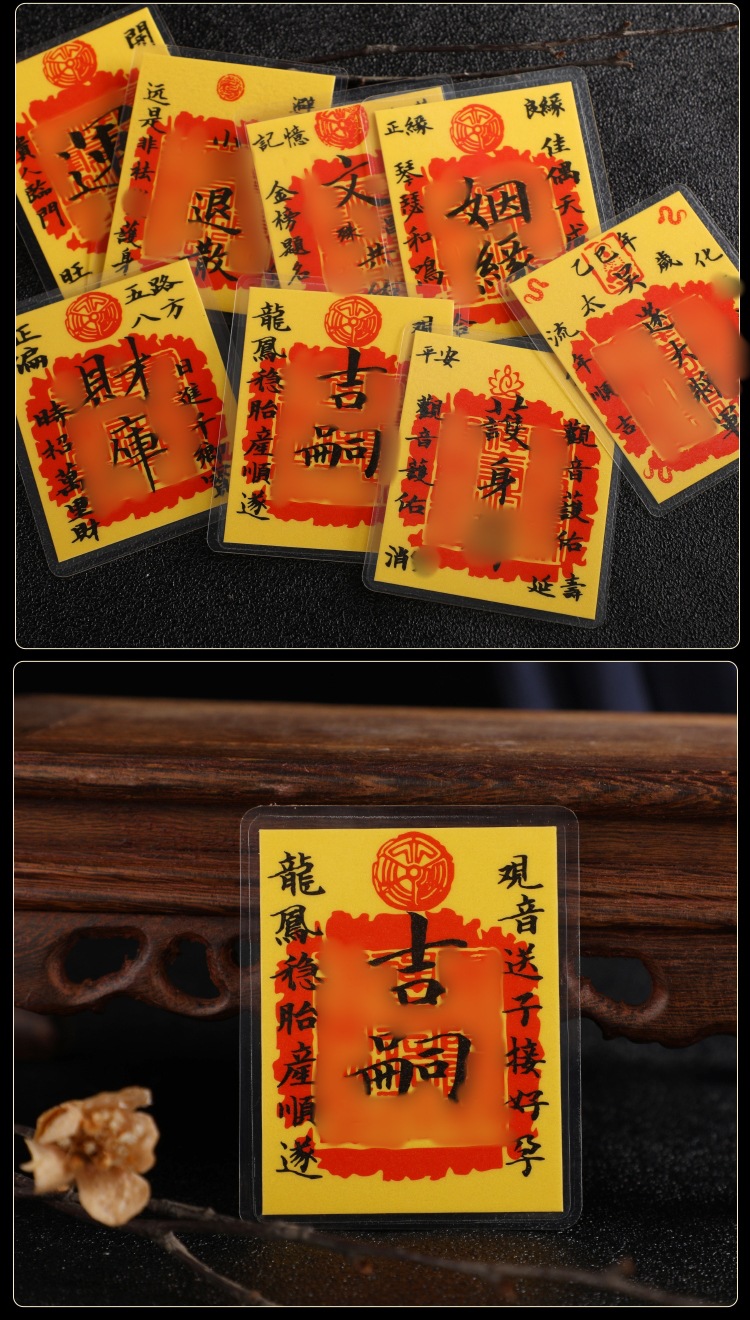 開
貴人臨門
旺
远是非祛
護身
小
退散
記憶
金榜題名
文
正緣
良緣
琴瑟和鳴
佳偶天成
姻緣
乙巳年
太
吳
歲
化
流年順吉
遂大將軍
正偏
五路
八方
財庫
時招萬里財
日進千
龍鳳稳胎産順遂
吉嗣
平安
觀音護佑
護身
觀音護佑
消
延壽
龍鳳稳胎産順遂
吉嗣
观音送子接好孕